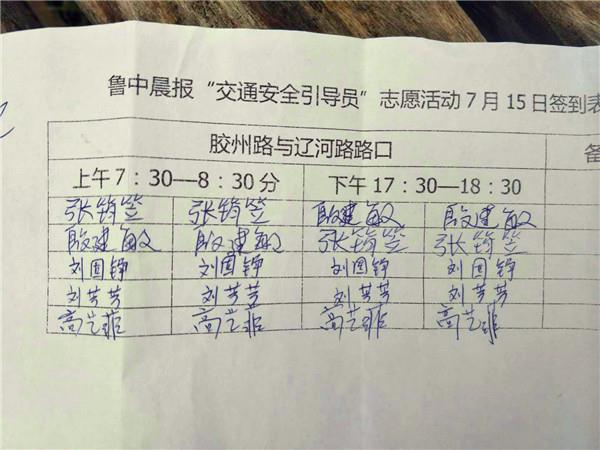 鲁中晨报“交通安全引导员”志愿活动7月15日签到表
胶州路与辽河路路口
上午7：30—8：30分 下午17：30—18：30
张筠笠 张筠笠 殷建敏 殷建敏
殷建敏 殷建敏 张筠笠 张筠笠
刘国铮 刘国铮 刘国铮 刘国铮
刘芳芳 刘芳芳 刘芳芳 刘芳芳
高艺菲 高艺菲 高艺菲 高艺菲